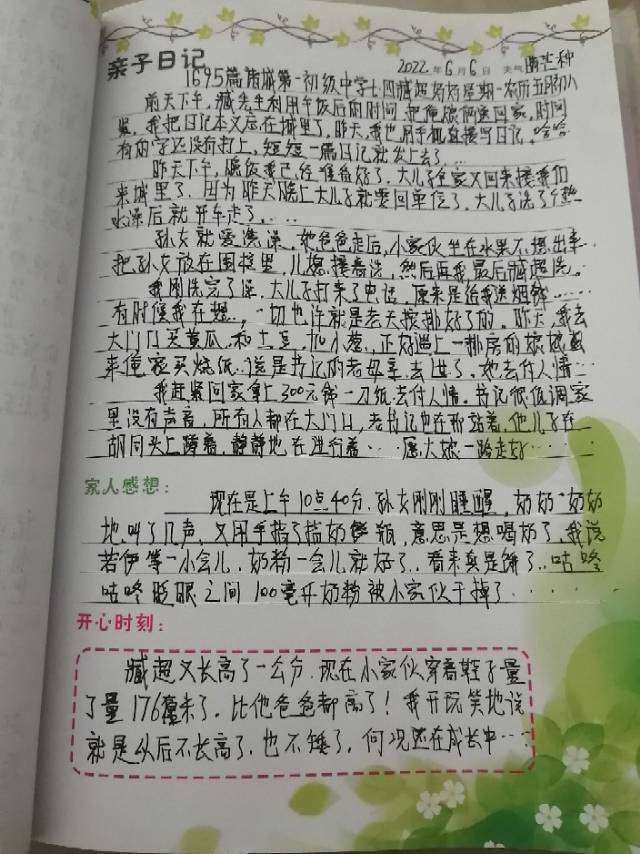 亲子日记
2022年6月6日 天气晴芒种
1695篇诸城第一初级中学七四臧超好好星期一农历五月初八
前天下午,臧先生利用午饭后的时间,把俺娘俩送回家,时间
紧,我把日记本又忘在城里了,昨天,我也用手机直接写日记,哈哈
有的字还没有打上,短短一篇日记就发上去了....
昨天下午,晚饭我已经准备好了,大儿子全家又回来接我们
来城里了,因为昨天晚上大儿子就要回单位了,大儿子洗了个热
水澡后就开车走了,....
孙女就爱洗澡,她爸爸走后,小家伙坐在水里不想出来..
把孙女放在围栏里,儿媳接着洗,然后再我,最后臧超洗。
我刚洗完了澡,大儿子打来了电话,原来是给我送烟钱......
有时候我在想,一切也许就是老天按排好了的,昨天,我去
大门口买黄瓜,和土豆,加小葱,正好遇上一排房的嫂嫂
来俺家买烧纸,说是书记的老母亲去世了,她去付人情...
我赶紧回家拿上300元钱一刀纸去付人情。书记很低调家
里没有声音,所有人都在大门口,老书记也在那站着,他儿子在
胡同头上蹲着,静静地在进行着...愿大娘一路走好.....
家人感想:
现在是上午10点40分,孙女刚刚睡醒,奶奶-奶奶
地,叫了几声,又用手指了指奶瓶,意思是想喝奶了,我说
若伊等一小会儿,奶粉一会儿就好了..看来真是饿了..咕咚
咕咚眨眼之间100毫升奶粉被小家伙干掉了......
开心时刻:
臧超又长高了一公分,现在小家伙穿着鞋子量
了量176厘米了,比他爸爸都高了!我开玩笑地说
就是从后不长高了,也不矮了,何况还在成长中...